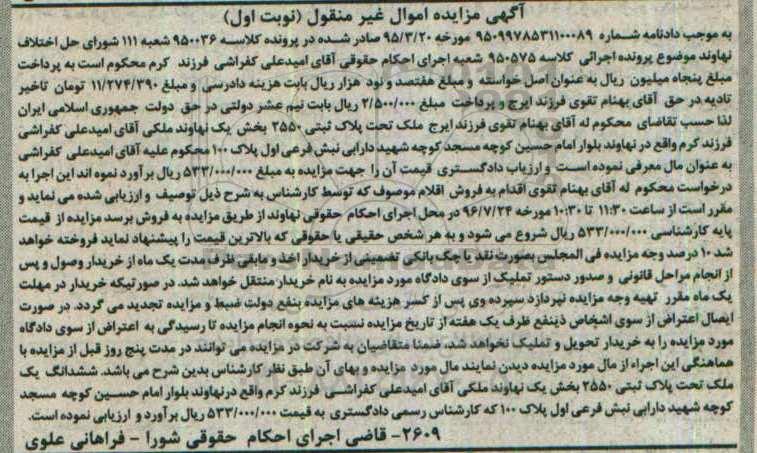 آگهی مزایده اموال غیر منقول (نوبت اول)
به موجب دادنامه شماره ۹۵۰۹۹۷۸۵۳۱۱۰۰۰۸۹ مورخه ۹۵/۳/۲۰ صادر شده در پرونده کلاسه ۹۵۰۰۳۶ شعبه ۱۱۱ شورای حل اختلاف
نهاوند موضوع پرونده اجرائی کلاسه ۹۵۰۵۷۵ شعبه اجرای احکام حقوقی آقای امیدعلی کفراشی فرزند کرم محکوم است به پرداخت
مبلغ پنجاه میلیون ریال به عنوان اصل خواسته و مبلغ هفتصد و نود هزار ریال بابت هزینه دادرسی و مبلغ ۱۱/۲۷۴/۳۹۰ تومان تاخیر
تادیه در حق آقای بهنام تقوی فرزند ایرج و پرداخت مبلغ ۲/۵۰۰/۰۰۰ ریال بابت نیم عشر دولتی در حق دولت جمهوری اسلامی ایران
لذا حسب تقاضای محکوم له آقای بهنام تقوی فرزند ایرج ملک تحت پلاک ثبتی ۲۵۵۰ بخش یک نهاوند ملکی آقای امیدعلی کفراشی
فرزند کرم واقع در نهاوند بلوار امام حسین کوچه مسجد کوچه شهید دارابی نبش فرعی اول پلاک ۱۰۰ محکوم علیه آقای امیدعلی کفراشی
به عنوان مال معرفی نموده است و ارزیاب دادگستری قیمت آن را جهت مزایده به مبلغ ۵۳۳/۰۰۰/۰۰۰ ریال برآورد نموده اند این اجرا به
درخواست محکوم له آقای بهنام تقوی اقدام به فروش اقلام موصوف که توسط کارشناس به شرح ذیل توصیف و ارزیابی شده می نماید و
مقرر است از ساعت ۱۱:۳۰ تا ۱۰:۳۰ مورخه ۹۶/۷/۲۴ در محل اجرای احکام حقوقی نهاوند از طریق مزایده به فروش برسد مزایده از قیمت
پایه کارشناسی ۵۳۳/۰۰۰/۰۰۰ ریال شروع می شود و به هر شخص حقیقی یا حقوقی که بالاترین قیمت را پیشنهاد نماید فروخته خواهد
شد ۱۰ درصد وجه مزایده فی المجلس بصورت نقد یا چک بانکی تضمینی از خریدار اخذ و مابقی ظرف مدت یک ماه از خریدار وصول و پس
از انجام مراحل قانونی و صدور دستور تملیک از سوی دادگاه مورد مزایده به نام خریدار منتقل خواهد شد. در صورتیکه خریدار در مهلت
یک ماه مقرر تهیه وجه مزایده نپردازد سپرده وی پس از کسر هزینه های مزایده بنفع دولت ضبط و مزایده تجدید می گردد. در صورت
ایصال اعتراض از سوی اشخاص ذینفع ظرف یک هفته از تاریخ مزایده نسبت به نحوه انجام مزایده تا رسیدگی به اعتراض از سوی دادگاه
مورد مزایده را به خریدار تحویل و تملیک نخواهد شد. ضمنا متقاضیان به شرکت در مزایده می توانند در مدت پنج روز قبل از مزایده با
هماهنگی این اجراء از مال مورد مزایده دیدن نمایند مال مورد مزایده و بهای آن طبق نظر کارشناس بدین شرح می باشد. ششدانگ یک
ملک تحت پلاک ثبتی ۲۵۵۰ بخش یک نهاوند ملکی آقای امیدعلی کفراشی فرزند کرم واقع درنهاوند بلوار امام حسین کوچه مسجد
کوچه شهید دارابی نبش فرعی اول پلاک ۱۰۰ که کارشناس رسمی دادگستری به قیمت ۵۳۳/۰۰۰/۰۰۰ ریال برآورد و ارزیابی نموده است.
۲۶۰۹- قاضی اجرای احکام حقوقی شورا - فراهانی علوی